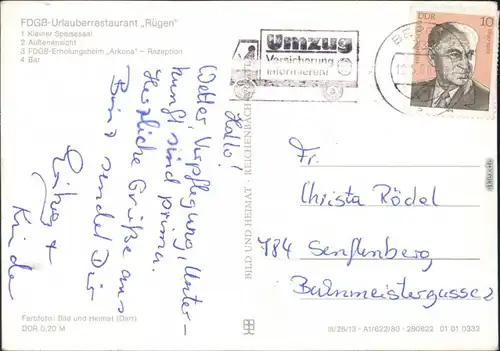 FDGB-Urlauberrestaurant „Rügen"
1 Kleiner Speisesaal
2 Außenansicht
3 FDGB-Erholungsheim „Arkona" – Rezeption
4 Bar
Hallo!
Wetter, Verpflegung, Unter-
kunft sind prima.
Herzliche Grüße aus
Binz sendet Dir
+
Kinder
Farbfoto: Bild und Heimat (Darr)
DDR 0,20 M
BILD UND HEIMAT · REICHENBACH
Umzug
Versicherung
informieren
DDR
10
Fr.
Christa Rödel
784 Senftenberg
Bahnmeistergasse 2
III/26/13 · A1/622/80 · 280622 01 01 0332